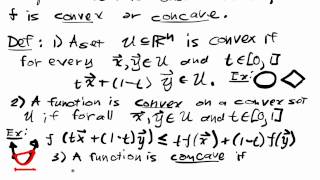 f is convex or concave.
Def: 1) A set U ⊆ ℝⁿ is convex if
for every x⃗, y⃗ ∈ U and t ∈ [0,1]
t x⃗ + (1-t) y⃗ ∈ U. Ex:
2) A function is convex on a convex set
U if for all x⃗, y⃗ ∈ U and t ∈ [0,1]
Ex: f(t x⃗ + (1-t) y⃗) ≤ t f(x⃗) + (1-t) f(y⃗)
3) A function is concave if